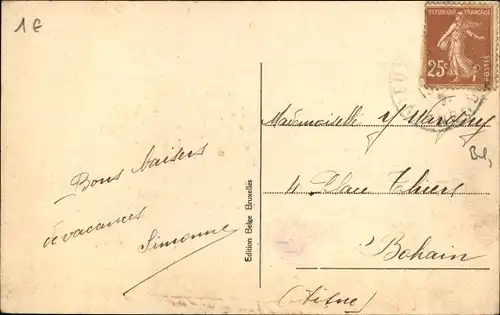 1€
RÉPUBLIQUE FRANÇAISE
25c
POSTES
Bons baisers
de vacances
Simonne
Edition Belge Bruxelles
Mademoiselle
4 Place Thiers
Bohain
(Aisne)